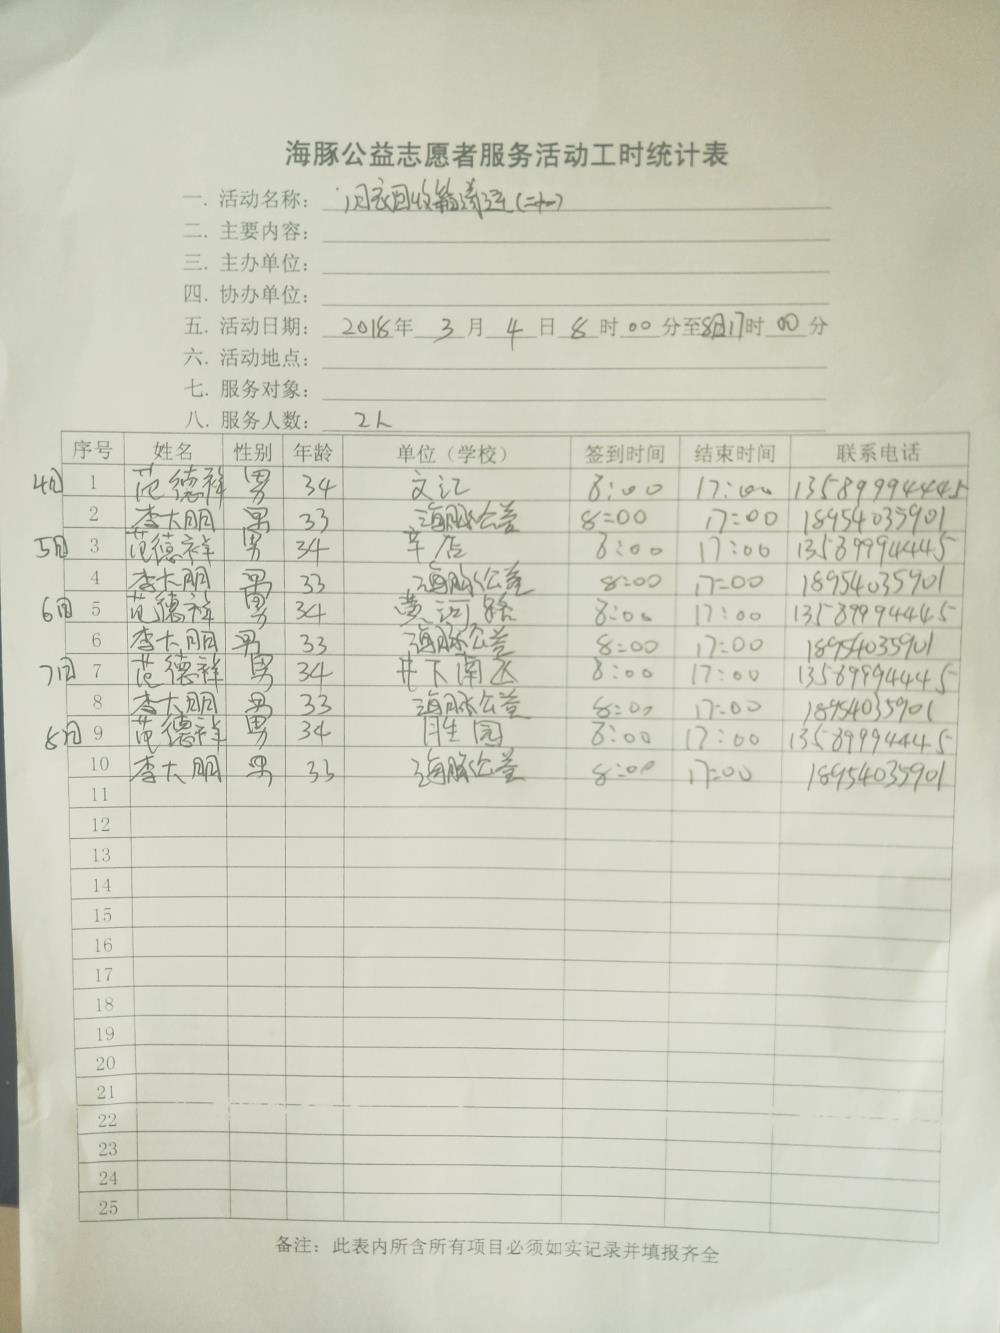 海豚公益志愿者服务活动工时统计表
一. 活动名称： 旧衣回收箱清运(二十一)
二. 主要内容：
三. 主办单位：
四. 协办单位：
五. 活动日期： 2018年 3月 4日 8时 00分至8日17时 00分
六. 活动地点：
七. 服务对象：
八. 服务人数： 2人
序号 姓名 性别 年龄 单位（学校） 签到时间 结束时间 联系电话
4日 1 范德祥 男 34 文汇 8:00 17:00 13589994445
2 李大朋 男 33 海豚公益 8:00 17:00 18954035901
5日 3 范德祥 男 34 辛店 8:00 17:00 13589994445
4 李大朋 男 33 海豚公益 8:00 17:00 18954035901
6日 5 范德祥 男 34 黄河路 8:00 17:00 13589994445
6 李大朋 男 33 海豚公益 8:00 17:00 18954035901
7日 7 范德祥 男 34 井下南区 8:00 17:00 13589994445
8 李大朋 男 33 海豚公益 8:00 17:00 18954035901
8日 9 范德祥 男 34 胜园 8:00 17:00 13589994445
10 李大朋 男 33 海豚公益 8:00 17:00 18954035901
11
12
13
14
15
16
17
18
19
20
21
22
23
24
25
备注：此表内所含所有项目必须如实记录并填报齐全